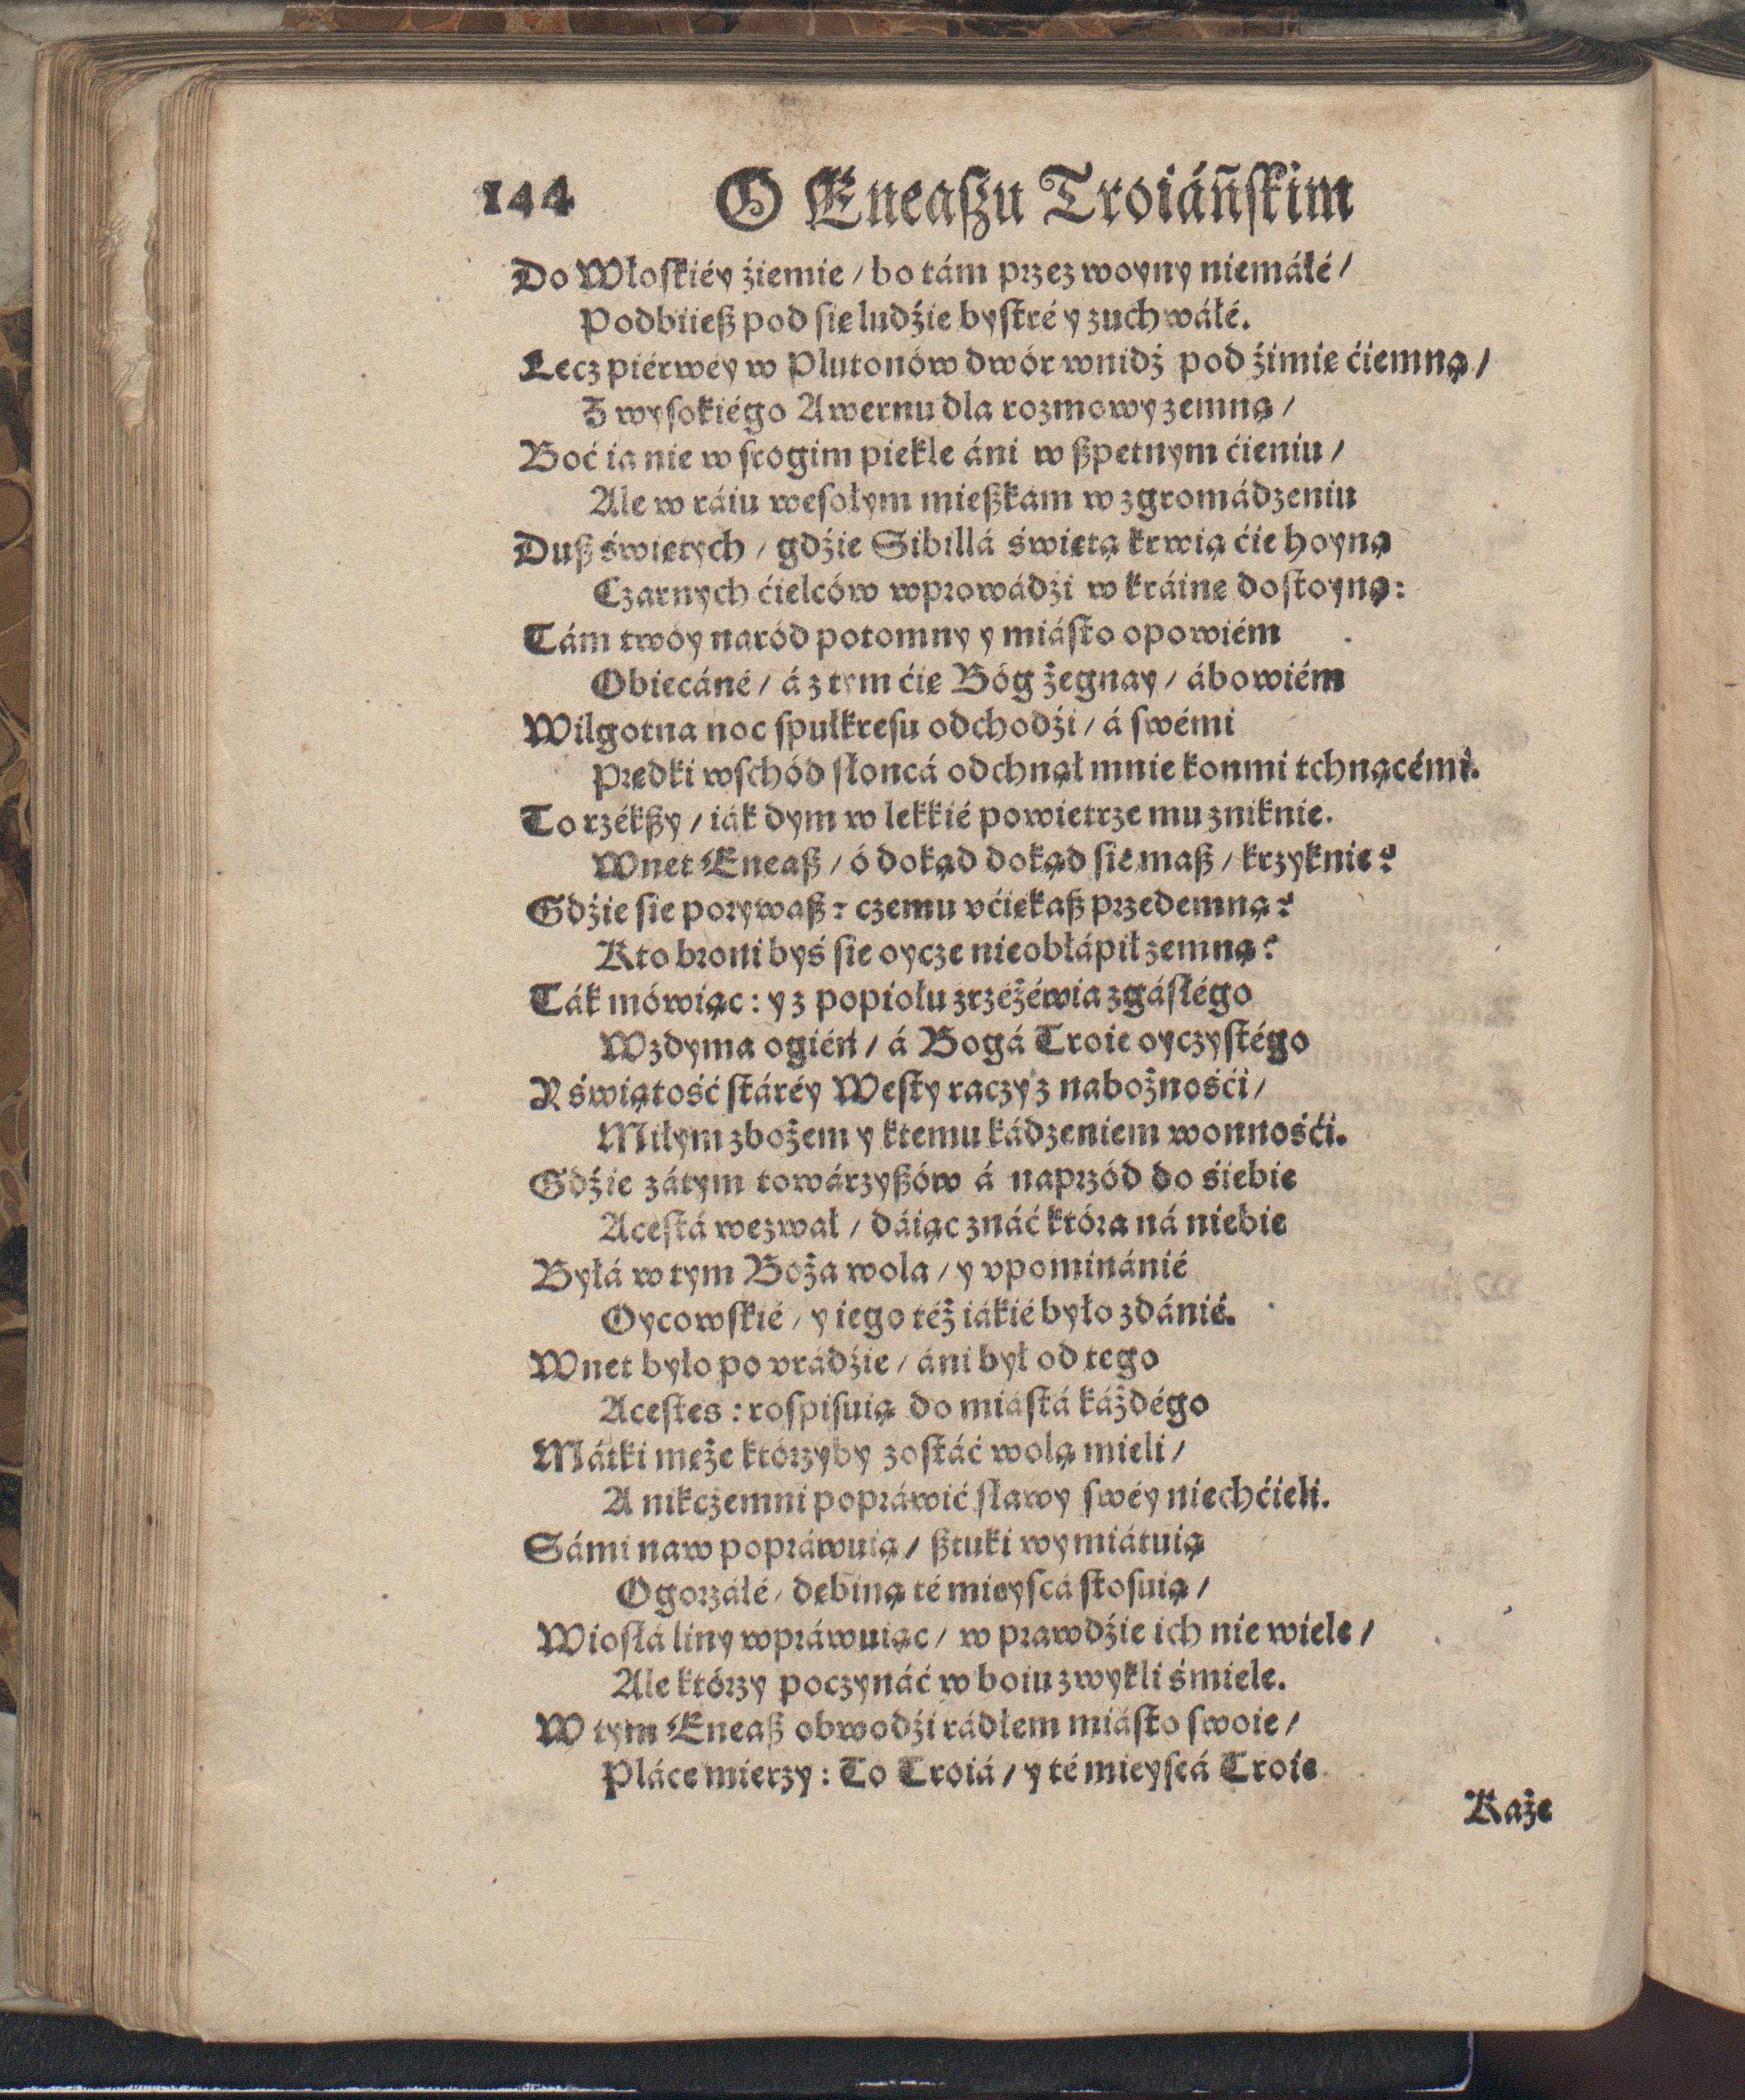 144 O Eneaszu Troiáñſkim
Do Włoſkiéy źiemie / bo tám przez woyny niemáłé /
Podbiieß pod ſię ludźie byſtré y zuchwáłé.
Lecz piérwéy w Plutonów dwór wnidź pod źimię ćiemną /
Z wyſokiégo Awernu dla rozmowy zemną /
Boć ia nie w ſrogim piekle áni w ßpetnym ćieniu /
Ale w ráiu weſołym mießkam w zgromádzeniu
Duß świętych / gdźie Sibillá świętą krwią ćię hoyną
Czarnych ćielców wprowádźi w kráinę doſtoyną:
Tám twóy naród potomny y miáſto opowiém
Obiecáné / á z tym ćię Bóg żegnay / ábowiém
Wilgotna noc ſpułkreſu odchodźi / á ſwémi
Prędki wſchód ſłoncá odchnął mnie konmi tchnącémi.
To rzékßy / iák dym w lekkié powietrze mu zniknie.
Wnet Eneaß / ó dokąd dokąd ſię maß / krzyknie?
Gdźie ſię porywaß? czemu vćiekaß przedemną?
Kto broni byś ſię oycze nieobłápił zemną?
Ták mówiąc: y z popiołu zrzéżéwia zgáſłégo
Wzdyma ogiéń / á Bogá Troie oyczyſtégo
Y świątość ſtáréy Weſty raczy z nabożnośći /
Miłym zbożem y ktemu kádzeniem wonnośći.
Gdźie zátym towárzyßów á naprzód do śiebie
Aceſtá wezwał / dáiąc znáć która ná niebie
Byłá w tym Boża wola / y vpominánié
Oycowſkié / y iego téż iákié było zdánié.
Wnet było po vrádźie / áni był od tego
Aceſtes: roſpiſuią do miáſtá káżdégo
Mátki męże którzyby zoſtáć wolą mieli /
A nikczemni popráwić ſławy ſwéy niechćieli.
Sámi naw popráwuią / ßtuki wymiátuią
Ogorzáłé / dębiną té mieyſcá ſtoſuią /
Wioſłá liny wpráwuiąc / w prawdźie ich nie wiele /
Ale którzy poczynáć w boiu zwykli śmiele.
W tym Eneaß obwodźi rádłem miáſto ſwoie /
Pláce mierzy: To Troiá / y té mieyſcá Troie
Każe